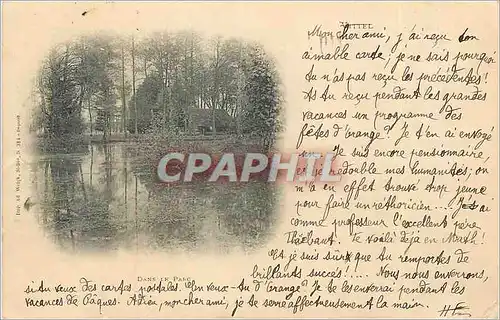 VITTEL
Mon cher ami, j'ai reçu ton
aimable carte; je ne sais pourquoi
tu n'as pas reçu les précédentes!
As tu reçu pendant les grandes
vacances un programme des
fêtes d'Orange? Je t'en ai envoyé
un. Je suis encore pensionnaire,
et je redouble mes humanités; on
m'a en effet trouvé trop jeune
pour faire un rhétoricien.... J'ai
comme professeur l'excellent père
Thiébaut. Te voilà déjà en Math!
Et je suis sûr que tu remportes de
brillants succès!.... Nous nous enverrons,
si tu veux des cartes postales. En veux-tu d'Orange? Je te les enverrai pendant les
vacances de Pâques. Adieu, mon cher ami, je te serre affectueusement la main.
DANS LE PARC
CPAPHIL.COM